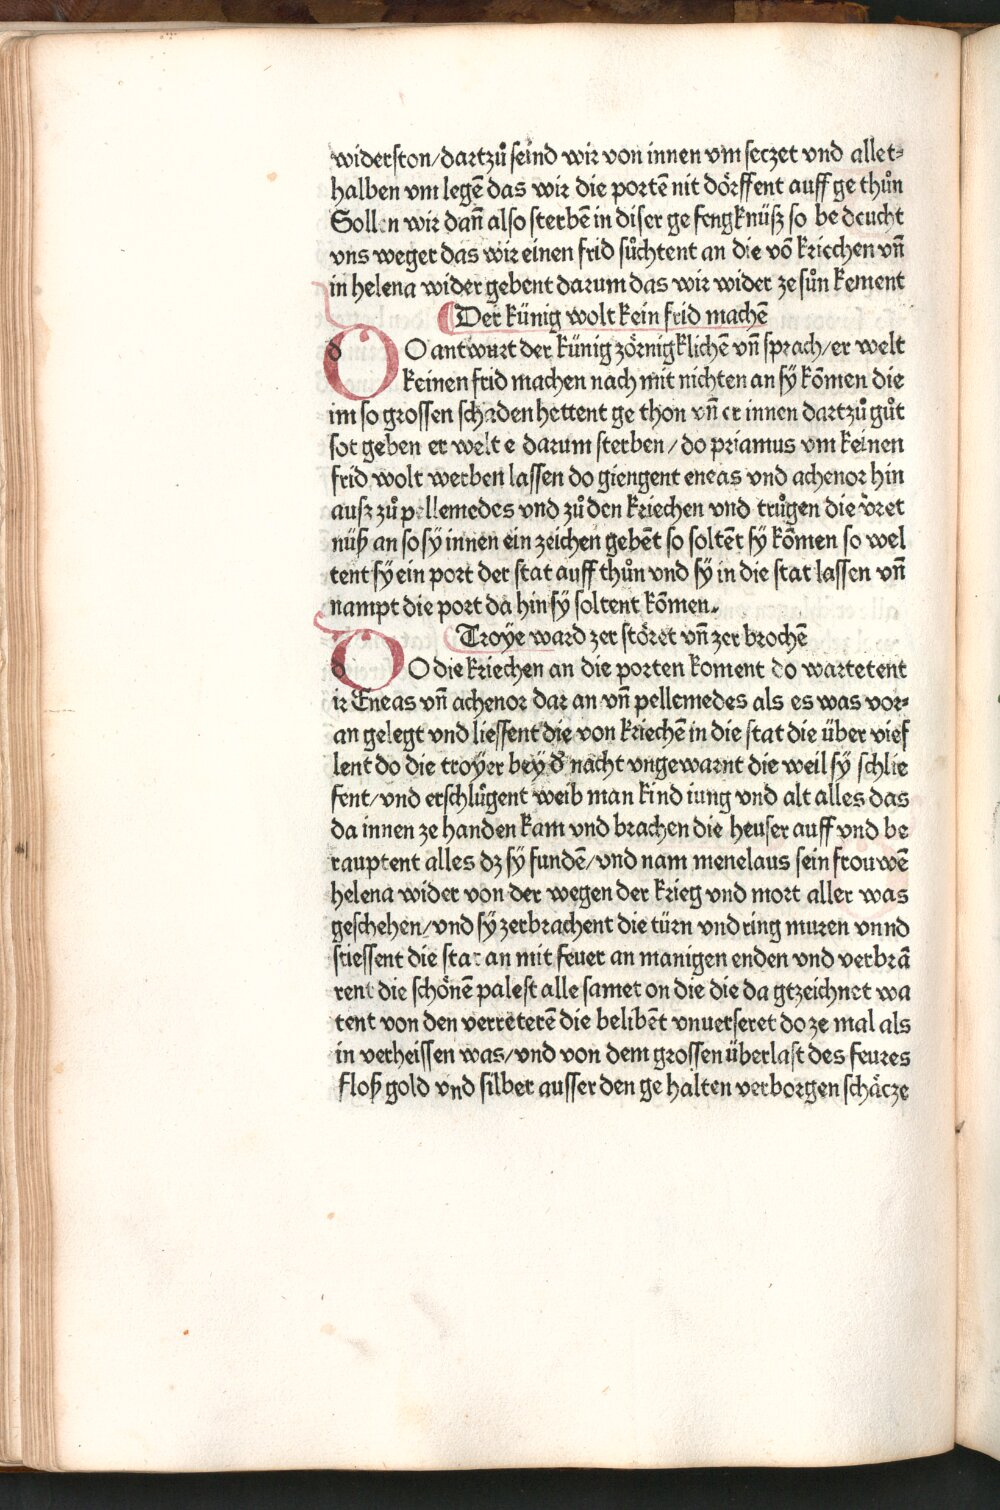 widerston/dartzuͦ seind wir von innen vm seczet vnd allet⸗
halben vm legē das wir die portē nit doͤrffent auff ge thuͦn
Sollen wir dañ also sterbē in diser ge fengknüsz so be deucht
vns weger das wir einen frid suͦchtent an die vō kriechen vñ
in helena wider gebent darum das wir wider ze suͦn kement
Der künig wolt kein frid machē
dO antwurt der künig zoͤrnigklichē vñ sprach/er welt
keinen frid machen nach mit nichten an sÿ kōmen die
im so grossen schaden hettent ge thon vñ er innen dartzuͦ guͦt
sot geben er welt e darum sterben/do priamus vm keinen
frid wolt werben lassen do giengent eneas vnd achenor hin
ausz zuͦ pellemedes vnd zuͦ den kriechen vnd truͦgen die v̄ret
nüß an so sÿ innen ein zeichen gebēt so soltēt sÿ kōmen so wel
tent sÿ ein port der stat auff thuͦn vnd sÿ in die stat lassen vñ
nampt die port da hin sÿ soltent kōmen.
Troÿe ward zer stoͤret vñ zer brochē
dO die kriechen an die porten koment do wartetent
ir Eneas vñ achenor dar an vñ pellemedes als es was vor⸗
an gelegt vnd liessent die von kriechē in die stat die über vief
lent do die troÿer beÿ d̄ nacht vngewarnt die weil sÿ schlie
fent/vnd erschluͦgent weib man kind iung vnd alt alles das
da innen ze handen kam vnd brachen die heuser auff vnd be
rauptent alles dz sÿ fundē/vnd nam menelaus sein frouwē
helena wider von der wegen der krieg vnd mort aller was
geschehen/vnd sÿ zerbrachent die türn vnd ring muren vnnd
stiessent die stat an mit feuer an manigen enden vnd verbrā
rent die schoͤnē palest alle samet on die die da gtzeichnet wa
tent von den verreterē die belibēt vnuerseret do ze mal als
in verheissen was/vnd von dem grossen überlast des feures
floß gold vnd silber ausser den ge halten verborgen schaͤcze